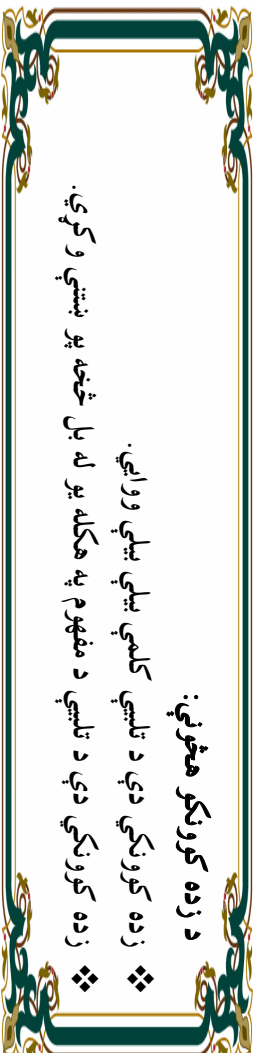 د زده کوونکو هڅونې:
❖ زده کوونکي دې د تلبيې کلمې بيلې بيلې ووايي.
❖ زده کوونکي دې د تلبيې د مفهوم په هکله يو له بل څخه يو ښتنې و کړي.